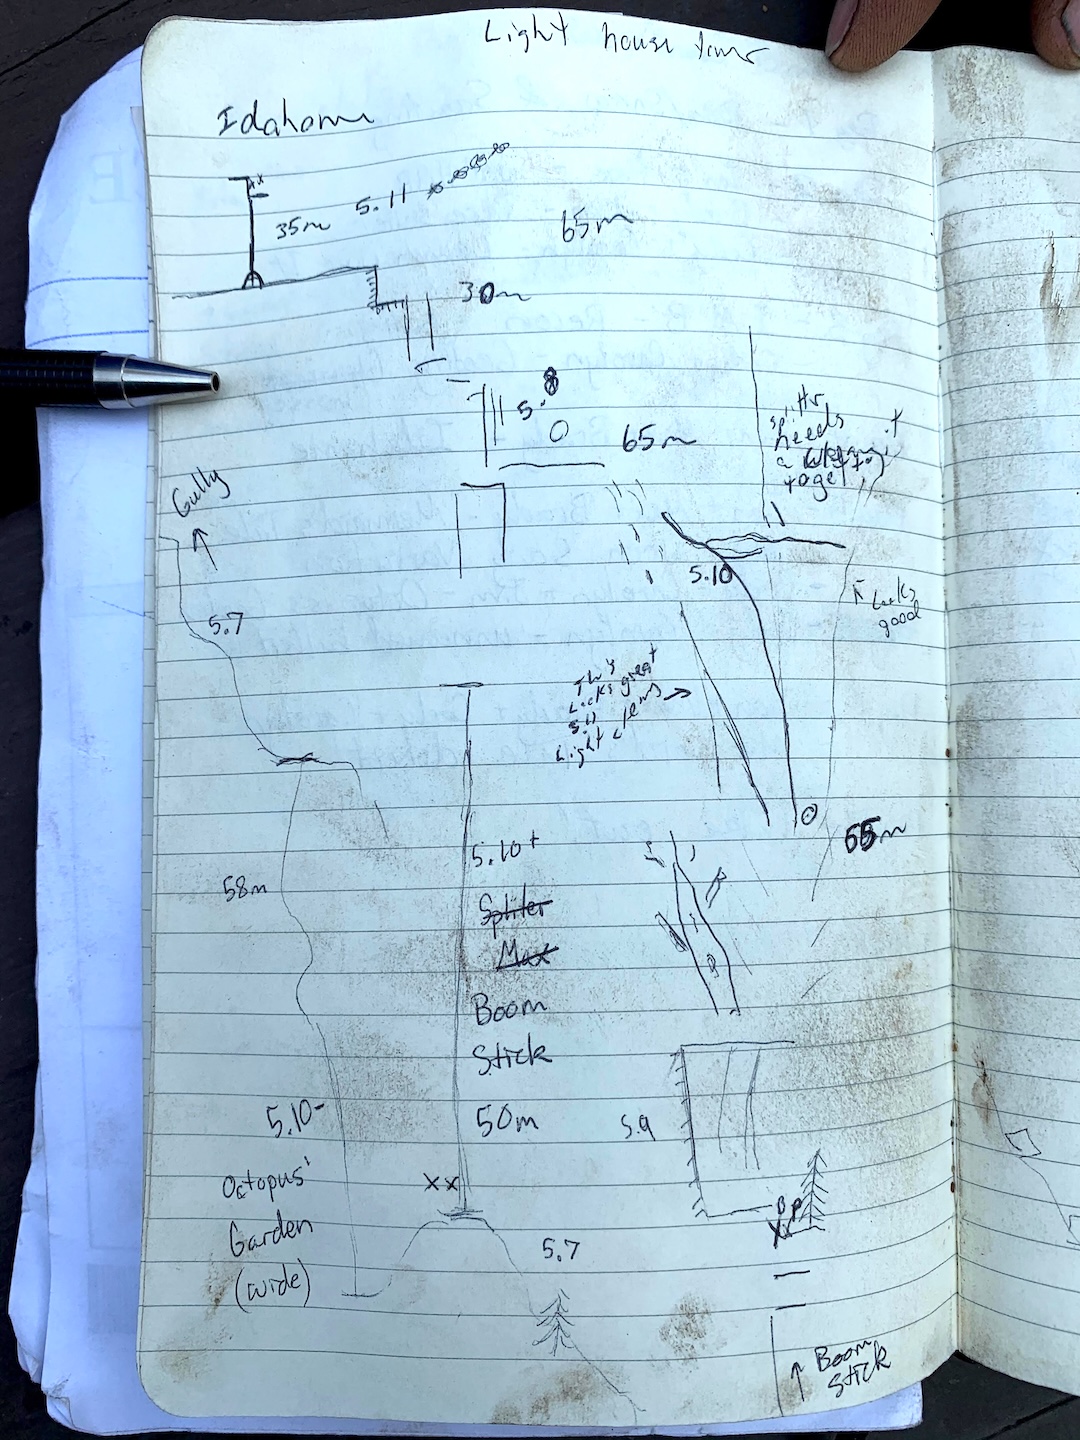 Light house tower
Idahome
35m
5.11
65m
30m
5.8
65m
splitter
needs
a
to get to it
Gully
5.7
5.10
Looks
good
This
Looks great
5.11
Light
55m
58m
5.10+
Boom
Stick
50m
5.10-
5.9
Octopus'
Garden
(wide)
XX
5.7
Boom
Stick